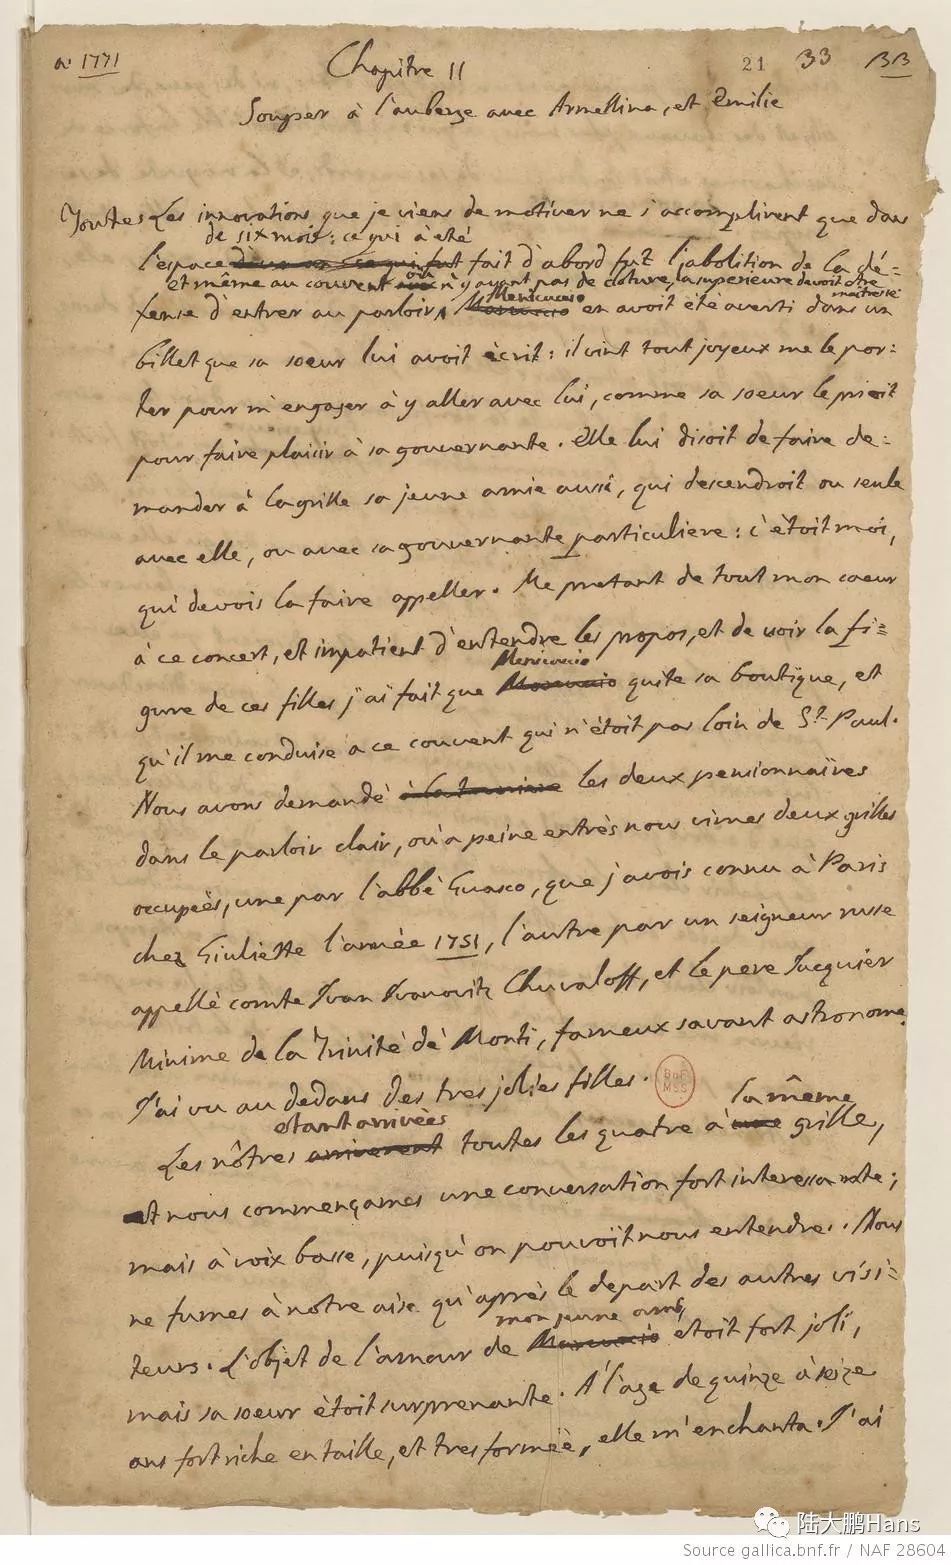 a: 1771 Chapitre II 21 33 BB
Souper à l'auberge avec Armellina, et Emilie
Toutes Les innovations que je viens de motiver ne s'accomplirent que dans
de six mois: ce qui à eté
l'espace fait d'abord fut l'abolition de la dé-
et même au couvent où n'y ayant pas de cloture, la superieure devoit être
maitresse
fense d'entrer au parloir, Menicuccio en avoit été averti dans un
billet que sa soeur lui avoit écrit: il vint tout joyeux me le por-
ter pour m'engager à y aller avec lui, comme sa soeur le prioit
pour faire plaisir à sa gouvernante. Elle lui disoit de faire de-
mander à la grille sa jeune amie aussi, qui descendroit ou seule
avec elle, ou avec sa gouvernante particuliere: c'étoit moi,
qui devois la faire appeller. Me pretant de tout mon coeur
à ce concert, et impatient d'entendre les propos, et de voir la fi-
Menicuccio
gure de ces filles j'ai fait que quite sa boutique, et
qu'il me conduise a ce couvent qui n'étoit pas loin de St. Paul.
Nous avons demandé les deux pensionnaires
dans le parloir clair, où a peine entrès nous vimes deux grilles
occupées, une par l'abbé Guasco, que j'avois connu à Paris
chez Giuliette l'année 1751, l'autre par un seigneur russe
appellé comte Ivan Ivanovitz Chuvaloff, et le pere Jacquier
Minime de la Trinité dé Monti, fameux savant astronome.
J'ai vu au dedans des tres jolies filles. BnF
MSS
etant arrivées la même
Les nôtres toutes les quatre à grille,
nous commençames une conversation fort interessante;
mais à voix basse, puisqu'on pouvoit nous entendre. Nous
ne fumes à nôtre aise qu'après le depart des autres visi-
mon jeune ami
teurs. L'objet de l'amour de étoit fort joli,
mais sa soeur étoit surprenante. A l'age de quinze à seize
ans fort riche en taille, et tres formée, elle m'enchanta. J'ai
陆大鹏Hans
Source gallica.bnf.fr / NAF 28604